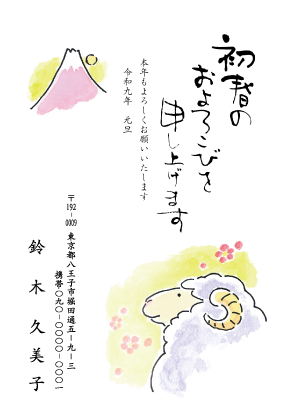 初春の
およろこびを
申し上げます
本年もよろしくお願いいたします
令和九年　元旦
〒192-0009
東京都八王子市堀田通五-九-三
携帯〇九〇-〇〇〇〇-〇〇〇一
鈴木久美子